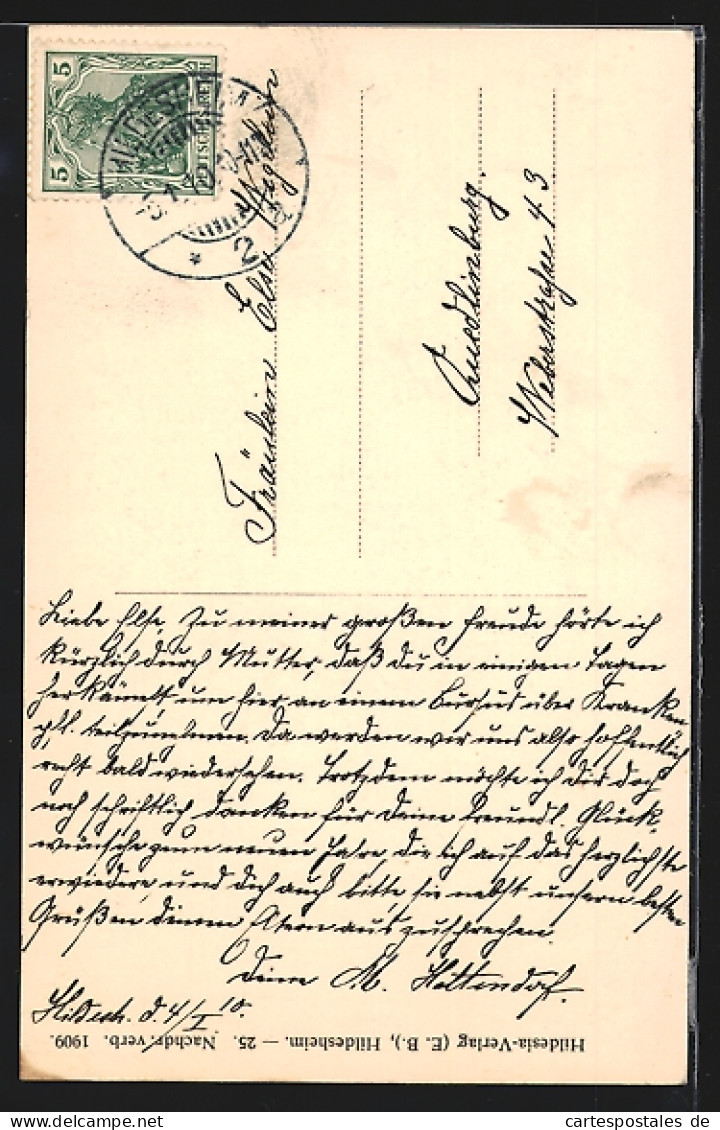 5
DEUTSCHES REICH
5
HILDESHEIM
* 2 d
Fräulein Else
Quedlinburg.
Weberstrasse 43
Liebe Else, Zu meiner großen Freude hörte ich
kürzlich durch Mutter, daß du in einigen Tagen
herkämest, um hier an einem Cursus über Kranken
pfl. teilzunehmen. Da werden wir uns also hoffentlich
recht bald wiedersehen. Trotzdem möchte ich Dir doch
noch schriftlich danken für Deine freundl. Glück-
wünsche zum neuen Jahre, die ich auf das herzlichste
erwidere, und dich auch bitte, sie nebst unsern besten
Grüßen deinen Eltern auszusprechen.
Deine M. Hottendorf.
Hildesh. d. 4/I 10.
Hildesia-Verlag (E. B.), Hildesheim. — 25. Nachdr. verb. 1909.
www.delcampe.net
cartespostales de